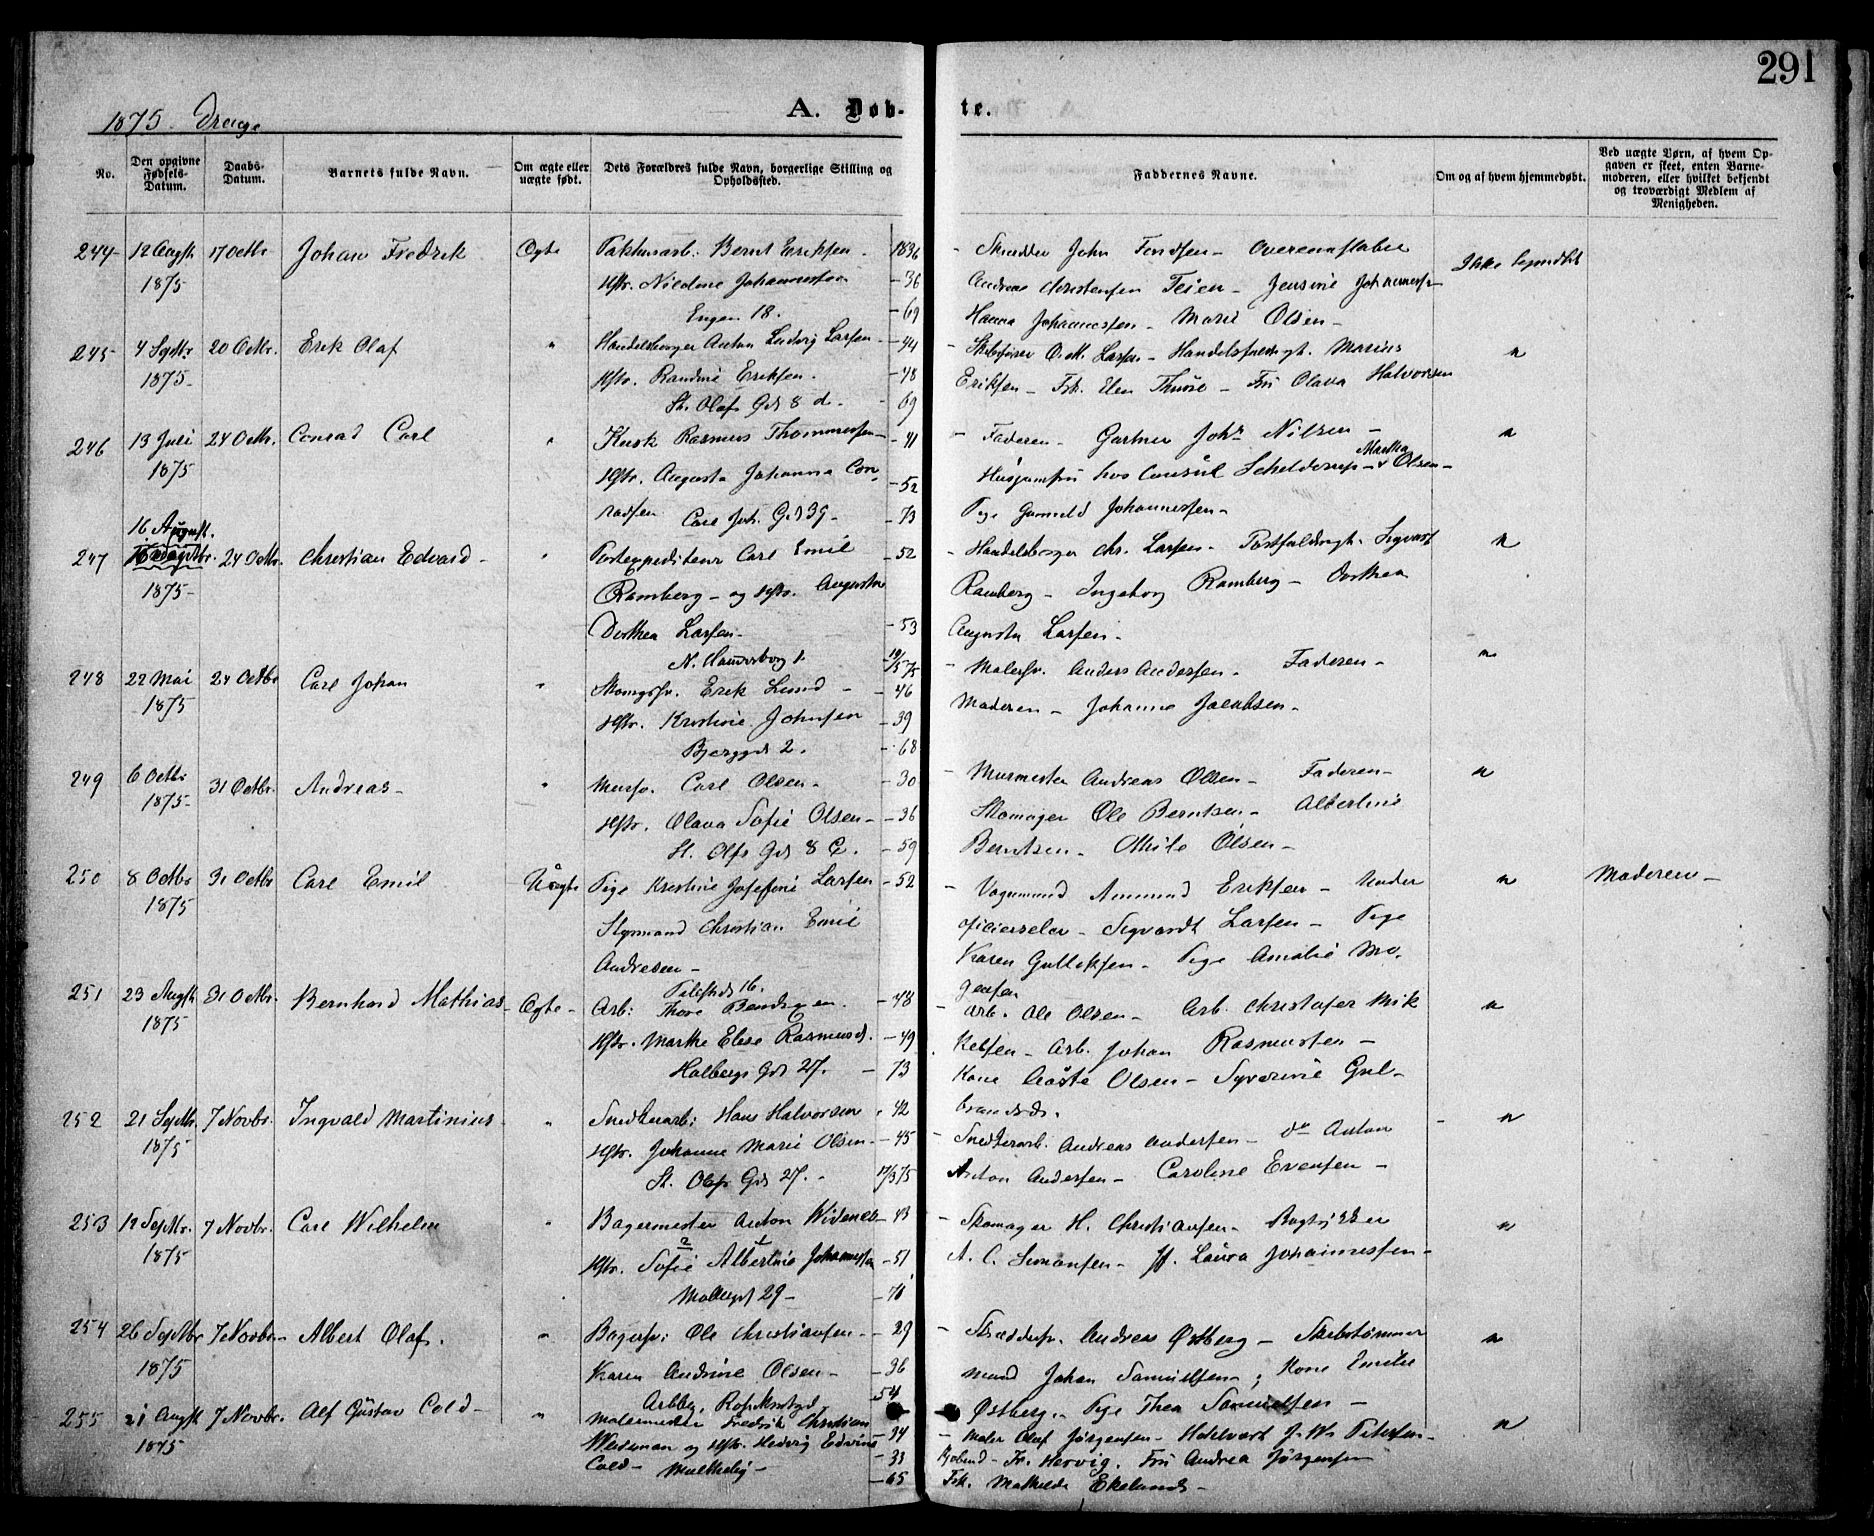 291
1875. Drenge
A. Døb-
te.
No.
Den opgivne Fødsels-Datum.
Daabs-Datum.
Barnets fulde Navn.
Om ægte eller uægte født.
Dets Forældres fulde Navn, borgerlige Stilling og Opholdssted.
Faddernes Navne.
Om og af hvem hjemmedøbt.
Ved uægte Børn, af hvem Opgaven er skeet, enten Barnemoderen, eller hvilket bekjendt og troværdigt Medlem af Menigheden.
244 12 Augst 17 Octbr Johan Fredrik Ægte Pakhusarb: Bernt Eriksen - 1836 - Skrædder John - Overconstabel Ikke hjmdbt
1875 Hstr. Nicoline Johannessen - 36 Andreas Christensen Teien - Jensine Johannessen
Engen 18. - 69 Hanna Johannessen - Marie Olsen -
245 4 Septbr. 20 Octbr. Erik Olaf " Handelsborger Anton Ludvig Larsen - 44 - Skibsfører O. M. Larsen - Handelsfuldmgt. Marius "
1875 - Hstr. Randine Eriksen. - 48 Eriksen - Frk. Elen - Fru Olava Halvorsen
St. Olafs Gd 8 d. - 69
246 13 Juli 24 Octbr. Conrad Carl " Kusk Rasmus Thommessen - 41 - Faderen - Gartner Johs Nilsen - "
1875 Hstr. Augusta Johanna Con- - 52 Husjomfru hos Consul Schelderup - Martha Olsen -
radsen Carl Joh. Gd 39 - - 73 Pige Gunnild Johannessen -
16. August.
247 24 Octbr. Christian Edvard - " Postexpediteur Carl Emil - 52 - Handelsborger Chr. Larsen - Postfuldmgt. Sigvart "
1875 - Ramberg - og Hstr. Augusta Ramberg - Ingeborg Ramberg - Dorthea
Dorthea Larsen - - 53 Augusta Larsen -
N. Hauersborg 1. 19/5 75
248 22 Mai 24 Octbr Carl Johan " Skomgsv. Erik Lund - - 46 - Malersv. Anders Andersen - Faderen - "
1875 Hstr. Kristine Johnsen - 39 Moderen - Johanne Jacobsen -
Berggd 2. - 68
249 6 Octbr 31 Octbr. Andreas - " Mursv. Carl Olsen - - 30 - Murmester Andreas Olsen - Faderen - "
1875 - Hstr. Olava Sofie Olsen - - 36 Skomager Ole Berntsen - Albertine
St. Olfs Gd 8 C. - 59 Berntsen - Othile Olsen -
250 8 Octbr 31 Octbr Carl Emil Uægte Pige Kristine Josefine Larsen - 52 - Vognmand Ammund Eriksen - Under " Moderen -
1875 Styrmand Christian Emil officierselev - Sigvardt Larsen - Pige
Andresen - Karen Gulliksen - Pige Amalie Mo-
Pilestd 16. gensen
251 23 Augst 31 Octbr. Bernhard Mathias - Ægte - Arb: Thore Bendixen. - 48 - Arb. Ole Olsen - Arb. Christofer Mik "
1875 Hstr. Marthe Elese Rasmusd. - 49 kelsen - Arb. Johan Rasmussen -
Holbergs Gd 27. - 73 Kone Olsen - Syverine Gul-
brandsd.
252 21 Septbr. 7 Novbr. Ingvald Martinius - " Snedkerarb: Hans Halvorsen - 42 - Snedkerarb. Andreas Andersen - do Anton - "
1875 Hstr. Johanne Marie Olsen - - 45 Anton Andersen - Caroline Evensen -
St. Olafs Gd 27. - 17/3 75
253 12 Septbr. 7 Novbr. Carl Wilhelm " Bagermester Anton - 43 - Skomager H. Christiansen - Bogtrykker "
1875 Hstr. Sofie Albertine Johannessen - 51 A. C. Simonsen - Jf. Laura Johannessen -
Møllergd 29 -
254 26 Septbr 7 Novbr - Albert Olaf. " Bagersv: Ole Christiansen - - 29 - Skræddersv. Andreas Østberg - Skibstømmer "
1875 Karen Andrine Olsen - - 36 mand Johan Samuelsen - Kone Emilie
- 54 Østberg - Pige Thea Samuelsen -
255 21 Augst 7 Novbr. Alf Gustav Cold - " Malermester Fredrik Christian - 34 - Maler Olaf Jørgensen - J. W. Petersen - "
1875 og Hstr. Hedvig Edvine - 33 Fr. Hervig. Fru Andrea Jørgensen
Cold - - 65 Frk. Mathilde Ekelund -